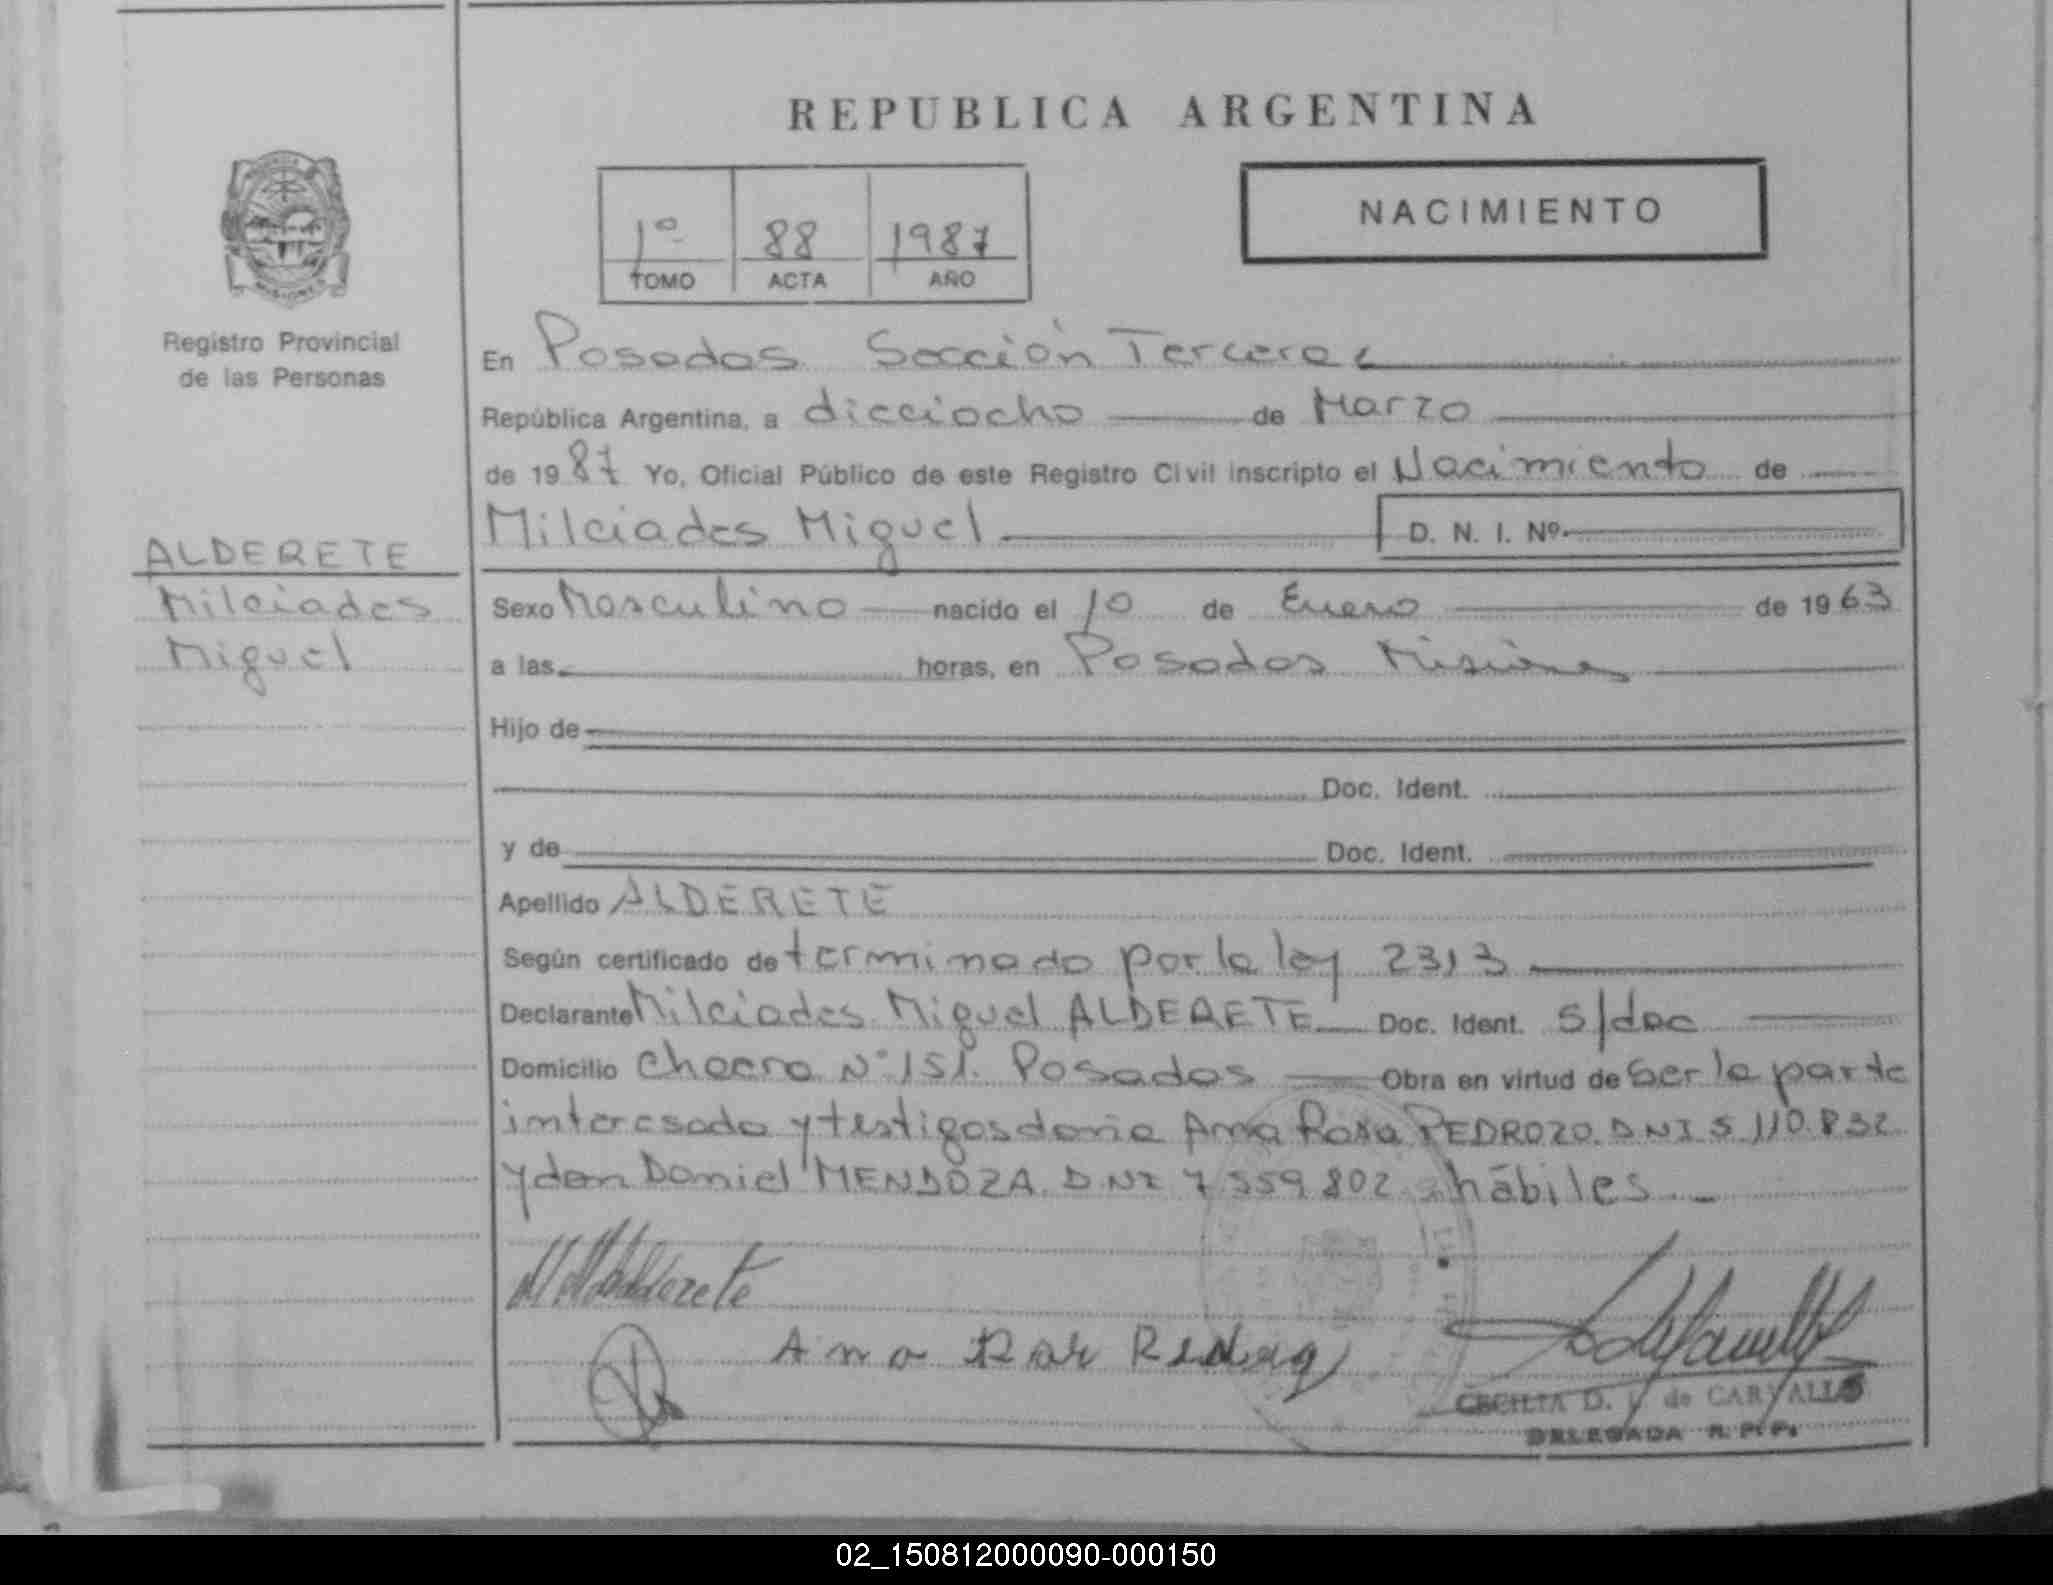 REPUBLICA ARGENTINA
1º 88 1987
TOMO ACTA AÑO
NACIMIENTO
PROVINCIA
MISIONES
Registro Provincial
de las Personas
ALDERETE
Milciades
Miguel
En Posadas Sección Tercera
República Argentina, a dieciocho de Marzo
de 1987 Yo, Oficial Público de este Registro Civil inscripto el Nacimiento de
Milciades Miguel D. N. I. Nº
Sexo Masculino nacido el 10 de Enero de 1963
a las horas, en Posadas Misiones
Hijo de
Doc. Ident.
y de Doc. Ident.
Apellido ALDERETE
Según certificado determinado por la ley 2313
Declarante Milciades Miguel ALDERETE Doc. Ident. S/doc
Domicilio Chacra Nº 151. Posadas Obra en virtud de Ser la parte
interesada y testigos doña Ana Rosa PEDROZO. DNI 5.110.832
y don Daniel MENDOZA. DNI 7.559.802 hábiles.
M. M. Alderete
Ana
CECILIA D. de CARVALLO
DELEGADA R. P. P.
02_150812000090-000150